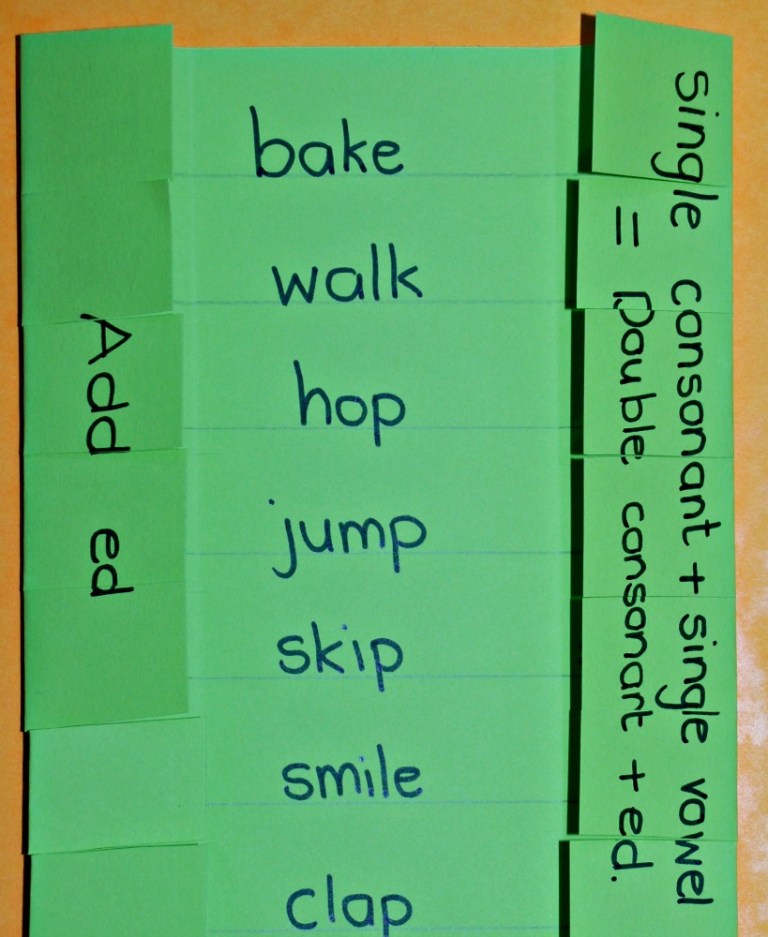 Add ed
bake
walk
hop
jump
skip
smile
clap
single consonant + single vowel
= Double consonant + ed.